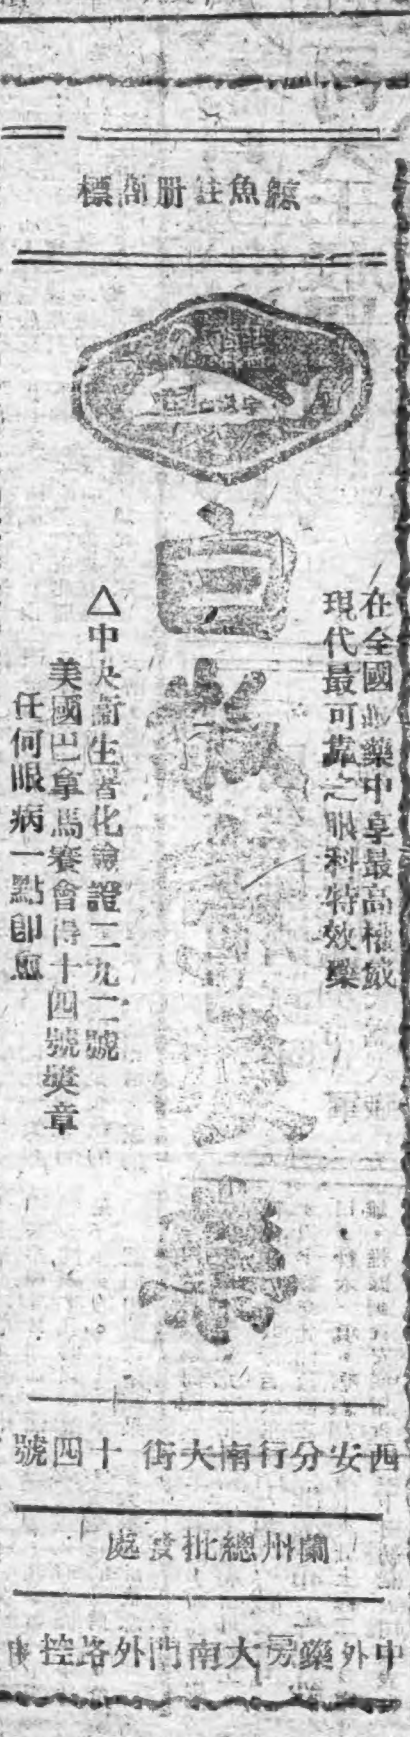 鯨魚註册商標
白敬宇眼藥
在全國眼藥中享最高權威
現代最可靠之眼科特效藥
△中央衞生署化驗證二九一號
美國巴拿馬賽會得十四號奬章
任何眼病一點卽愈
西安分行南大街十四號
蘭州總批發處
中外藥房大南門外路